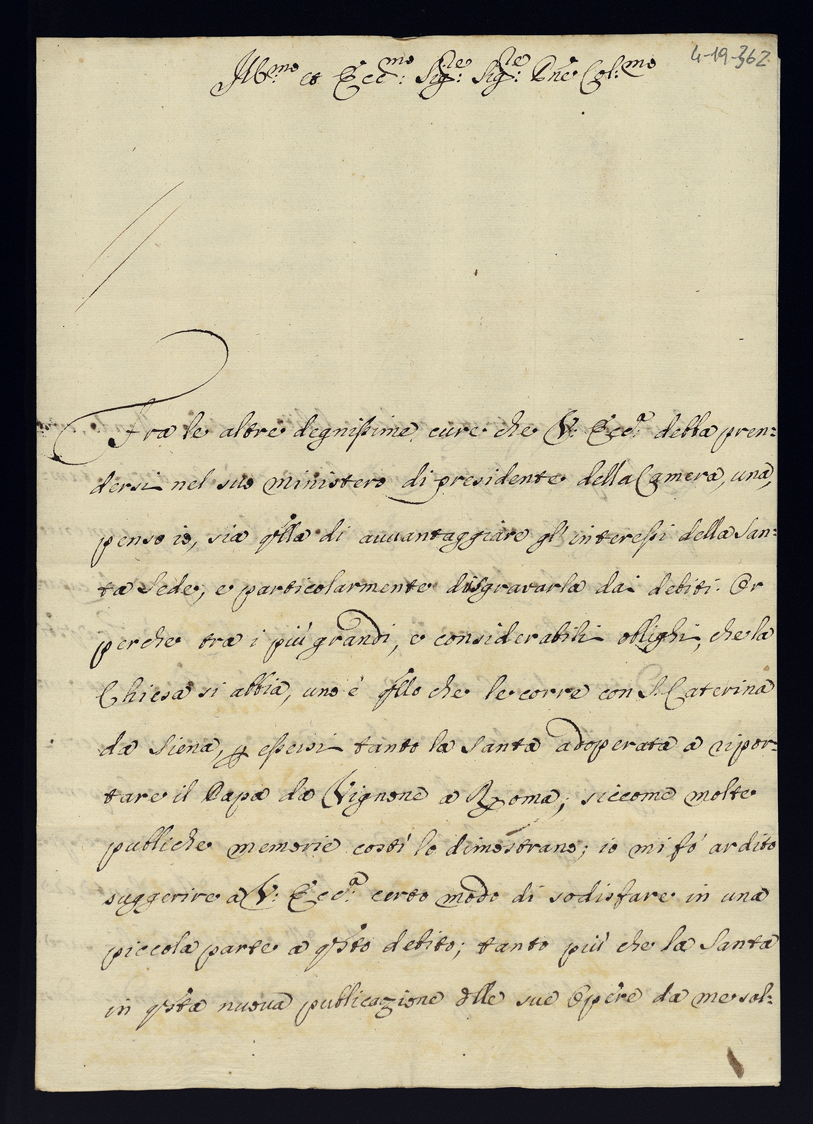 4-19-362
Ill.mo et Ecc.mo Sig.re Sig.re Pne Col.mo
Fra le altre degnissime cure che V. Ecc.a debba pren:
dersi nel suo ministero di presidente della Camera, una,
penso io, sia qlla di avvantaggiare gl'interessi della San:
ta Sede, e particolarmente disgravarla dai debiti. Or
perche tra i più grandi, e considerabili oblighi, che la
Chiesa si abbia, uno è qllo che le corre con S. Caterina
da Siena, p essersi tanto la Santa adoperata a ripor:
tare il Papa da Vignone a Roma; siccome molte
publiche memorie costì lo dimostrano; io mi fo' ardito
suggerire a V. Ecc.a certo modo di sodisfare in una
piccola parte a qsto debito; tanto più che la Santa
in qsta nuova publicazione dlle sue Opere da me sol: